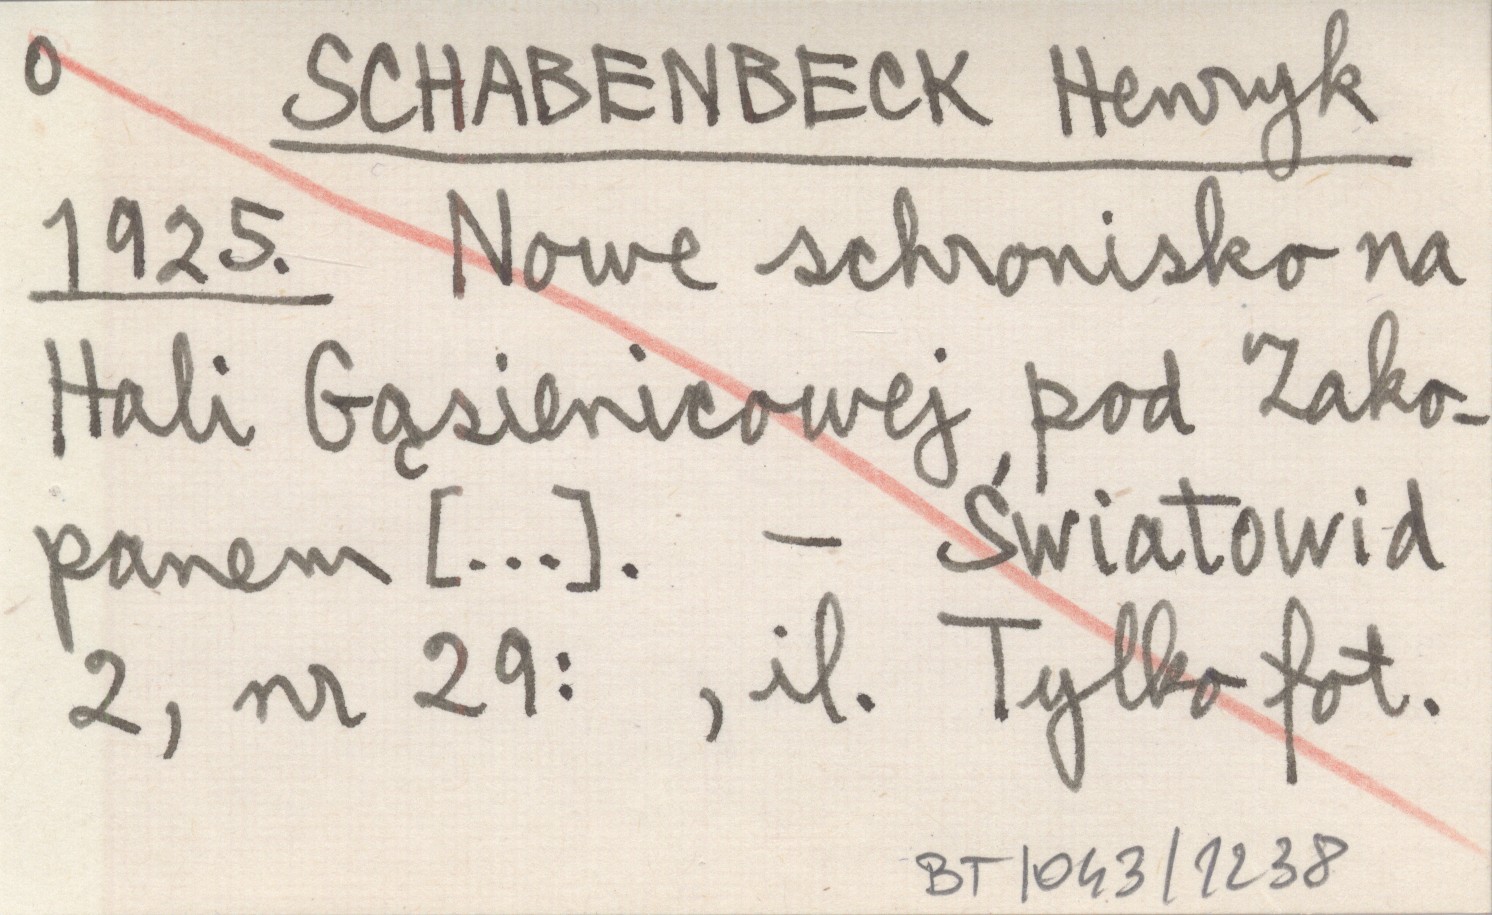 0 SCHABENBECK Henryk
1925. Nowe schronisko na
Hali Gąsienicowej pod Zako-
panem [...]. – Światowid
2, nr 29: , il. Tylko fot.
BT/043/1238